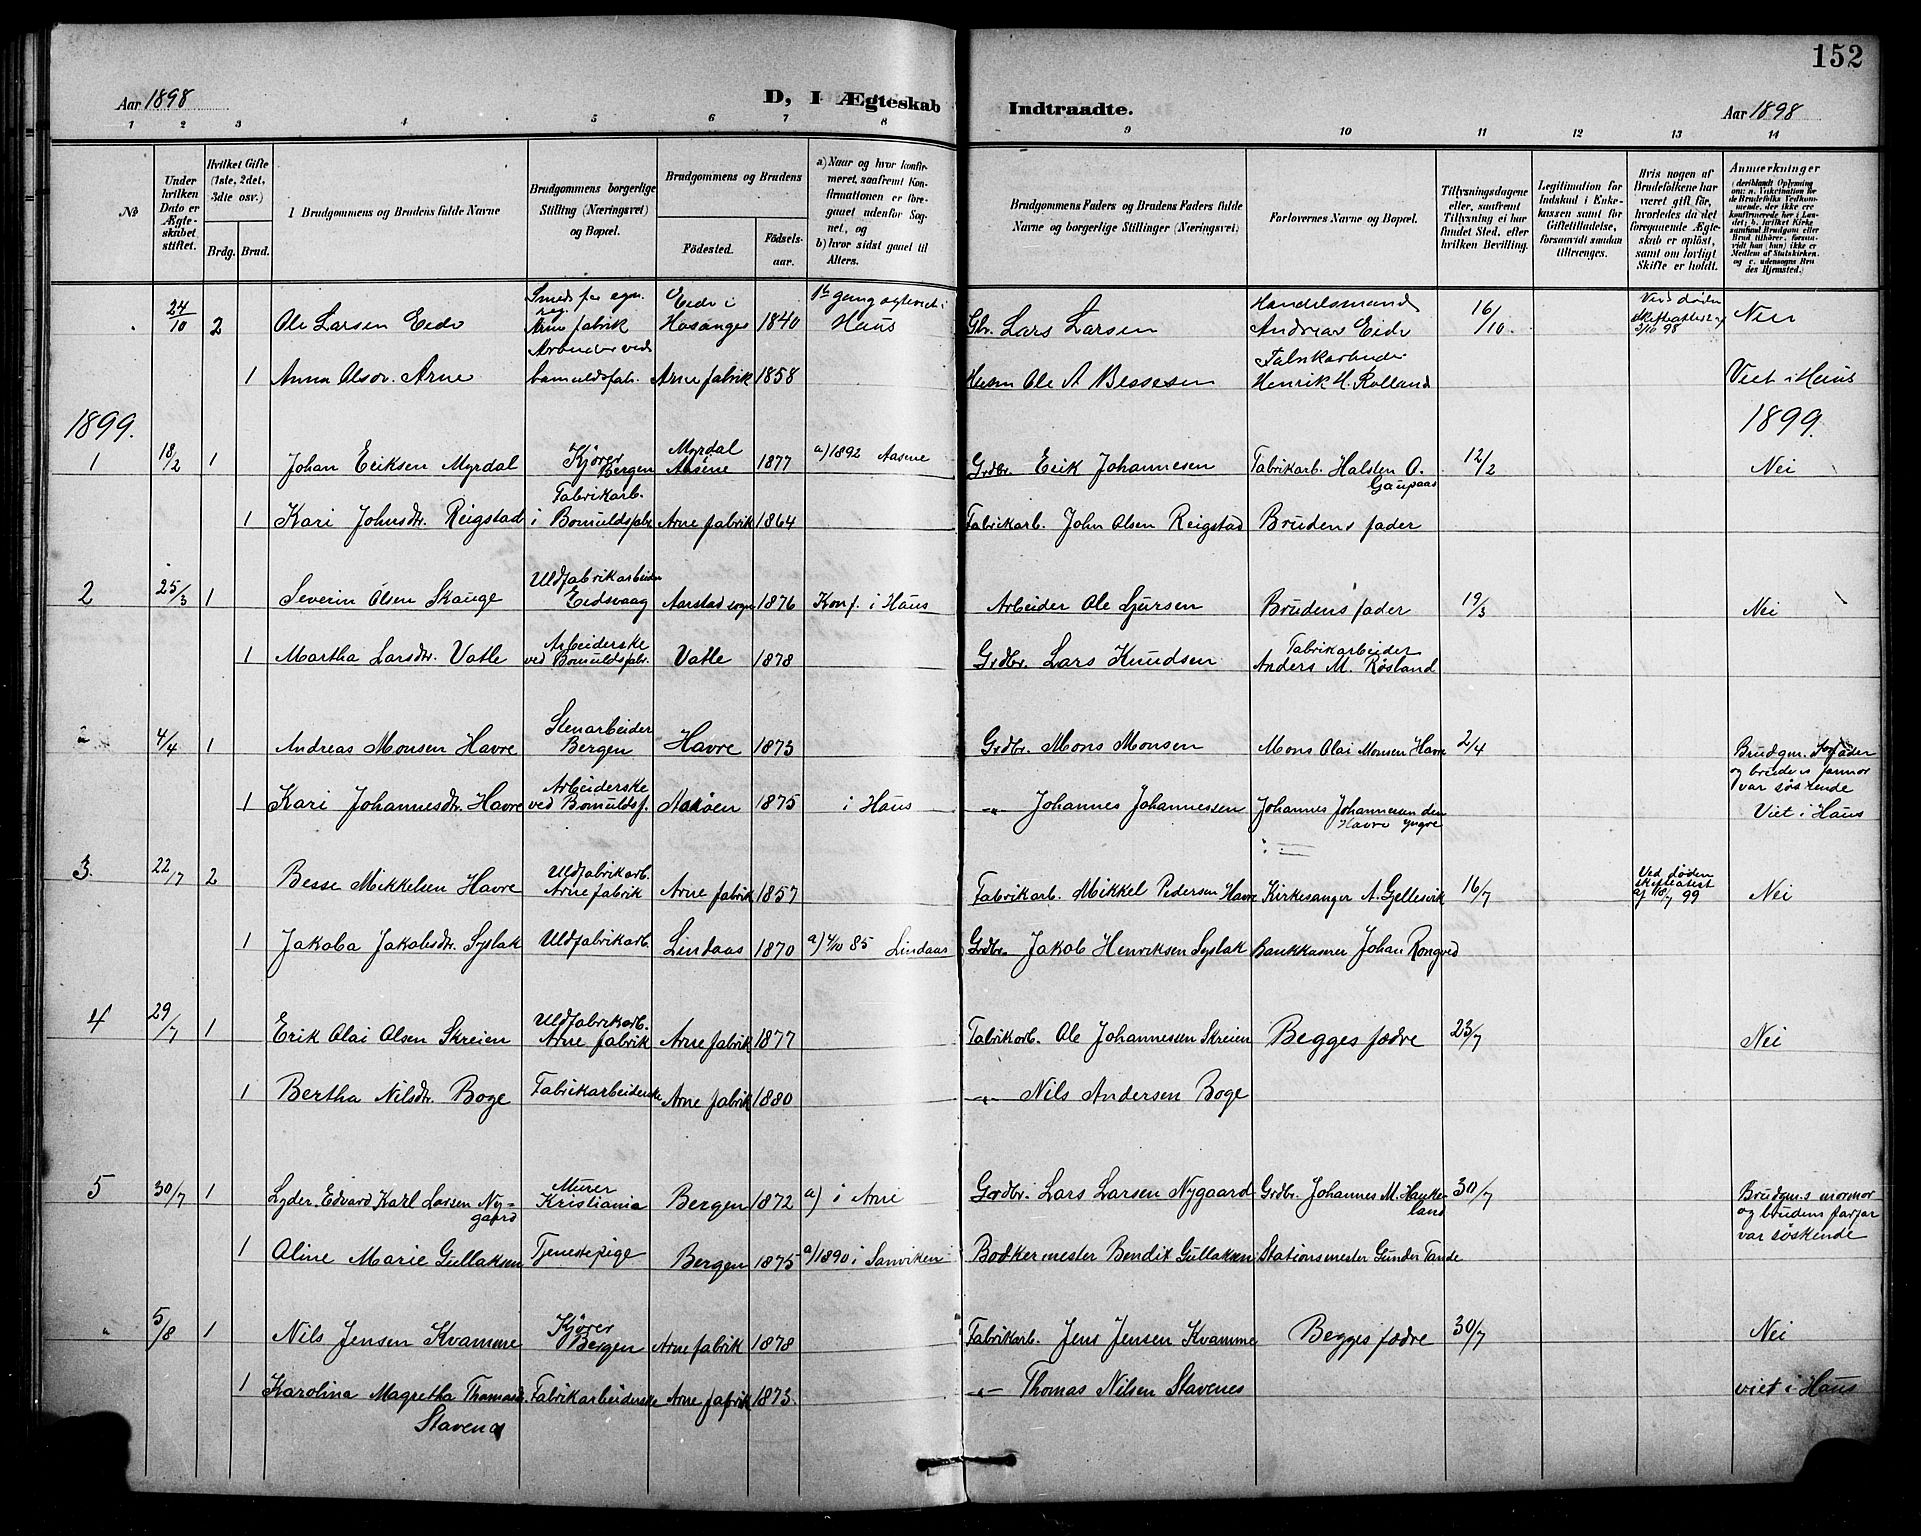 152
Aar 1898 D, I Ægteskab Indtraadte. Aar 1898
1 2 3 4 5 6 7 8 9 10 11 12 13 14
No
Under hvilken Dato er Ægteskabet stiftet.
Hvilket Gifte (1ste, 2det, 3dte osv.)
Brdg. Brud.
Brudgommens og Brudens fulde Navne
Brudgommens borgerlige Stilling (Næringsvei) og Bopæl.
Brudgommens og Brudens
Fødested. Fødselsaar.
a) Naar og hvor konfirmeret, saafremt Konfirmationen er foregaaet udenfor Sognet, og
b) hvor sidst gaaet til Alters.
Brudgommens Faders og Brudens Faders fulde Navne og borgerlige Stillinger (Næringsvei)
Forlovernes Navne og Bopæl.
Tillysningsdagene eller, saafremt Tillysning ei har fundet Sted, efter hvilken Bevilling.
Legitimation for Indskud i Enkekassen samt for Giftetilladelse, forsaavidt saadan tiltrænges.
Hvis nogen af Brudefolkene har været gift før, hvorledes da det foregaaende Ægteskab er opløst, samt om lovligt Skifte er holdt.
Anmærkninger
24/10 2 Ole Larsen Eide Arne fabrik Eide i Hosanger 1840 Haus Gbr. Lars Larsen Handelsmand Andreas Eide 16/10. Ved døden 3/10 98 Nei
1 Anna Olsdr. Arne Arbeider ved bomuldsfab. Arne fabrik 1858 Husm Ole A Bessesen Fabrikarbeider Henrik H. Rolland Viet i Haus
1899. 1899.
1 18/2 1 Johan Eriksen Myrdal Kjører Bergen Myrdal Aasene 1877 a) 1892 Aasene Grdbr. Erik Johannesen Fabrikarb. Halsten O. Gaupaas 12/2 Nei
1 Kari Johnsdtr. Reigstad Fabrikarb. i Bomuldsfabr. Arne fabrik 1864 Fabrikarb. John Olsen Reigstad Brudens fader
2 25/3 1 Severin Olsen Skauge Uldfabrikarbeider Eidsvaag Aarstad sogn 1876 Konf. i Haus Arbeider Ole Sjursen Brudens fader 19/3 Nei
1 Martha Larsdtr. Vatle Arbeiderske ved Bomuldsfabr. Vatle 1878 Grdbr. Lars Knudsen Fabrikarbeider Anders M. Røsland
" 4/4 1 Andreas Monsen Havre Stenarbeider Bergen Havre 1873 Grdbr. Mons Monsen Mons Olai Monsen Havre 2/4 Brudgm. farfader og brudens farmor var søskende
1 Kari Johannesdtr. Havre Arbeiderske ved Bomuldsf. 1875 i Haus -"- Johannes Johannessen Johannes Johannesen den yngre Havre Viet i Haus
3. 22/7 2 Besse Mikkelsen Havre Uldfabrikarb. Arne fabrik Arne fabrik 1857 Fabrikarb. Mikkel Pedersen Havre Kirkesanger A. Gjellesvik 16/7 Ved døden skifteattest af 18/7 99 Nei
1 Jakoba Jakobsdtr. Syslak Uldfabrikarb. Lindaas 1870 a) 4/10 85 Lindaas Grdbr. Jakob Henriksen Syslak Bankkaserer Johan Rongved
4 29/7 1 Erik Olai Olsen Skreien Uldfabrikarb. Arne fabrik Arne fabrik 1877 Fabrikarb. Ole Johannesen Skreien Begges fædre 23/7 Nei
1 Bertha Nilsdtr. Boge Fabrikarbeiderske Arne fabrik 1880 -"- Nils Andersen Boge
5 30/7 1 Lyder Edvard Karl Larsen Nygaard Murer Kristiania Bergen 1872 a) i Arne Grdbr. Lars Larsen Nygaard Grdbr. Johannes M. Haukeland 30/7 Brudgm.s mormor og brudens farfar var søskende
1 Aline Marie Gullaksen Tjenestepige Bergen 1875 a) 1890 i Sanviken Bødkermester Bendix Gullaksen Stationsmester Gunder Tande
" 5/8 1 Nils Jensen Kvamme Kjører Bergen Arne fabrik 1878 Fabrikarb. Jens Jensen Kvamme Begges fædre 30/7 Nei
1 Karolina Magretha Thomasd. Stavenes Fabrikarbeiderske Arne fabrik 1873 -"- Thomas Nilsen Stavenes viet i Haus